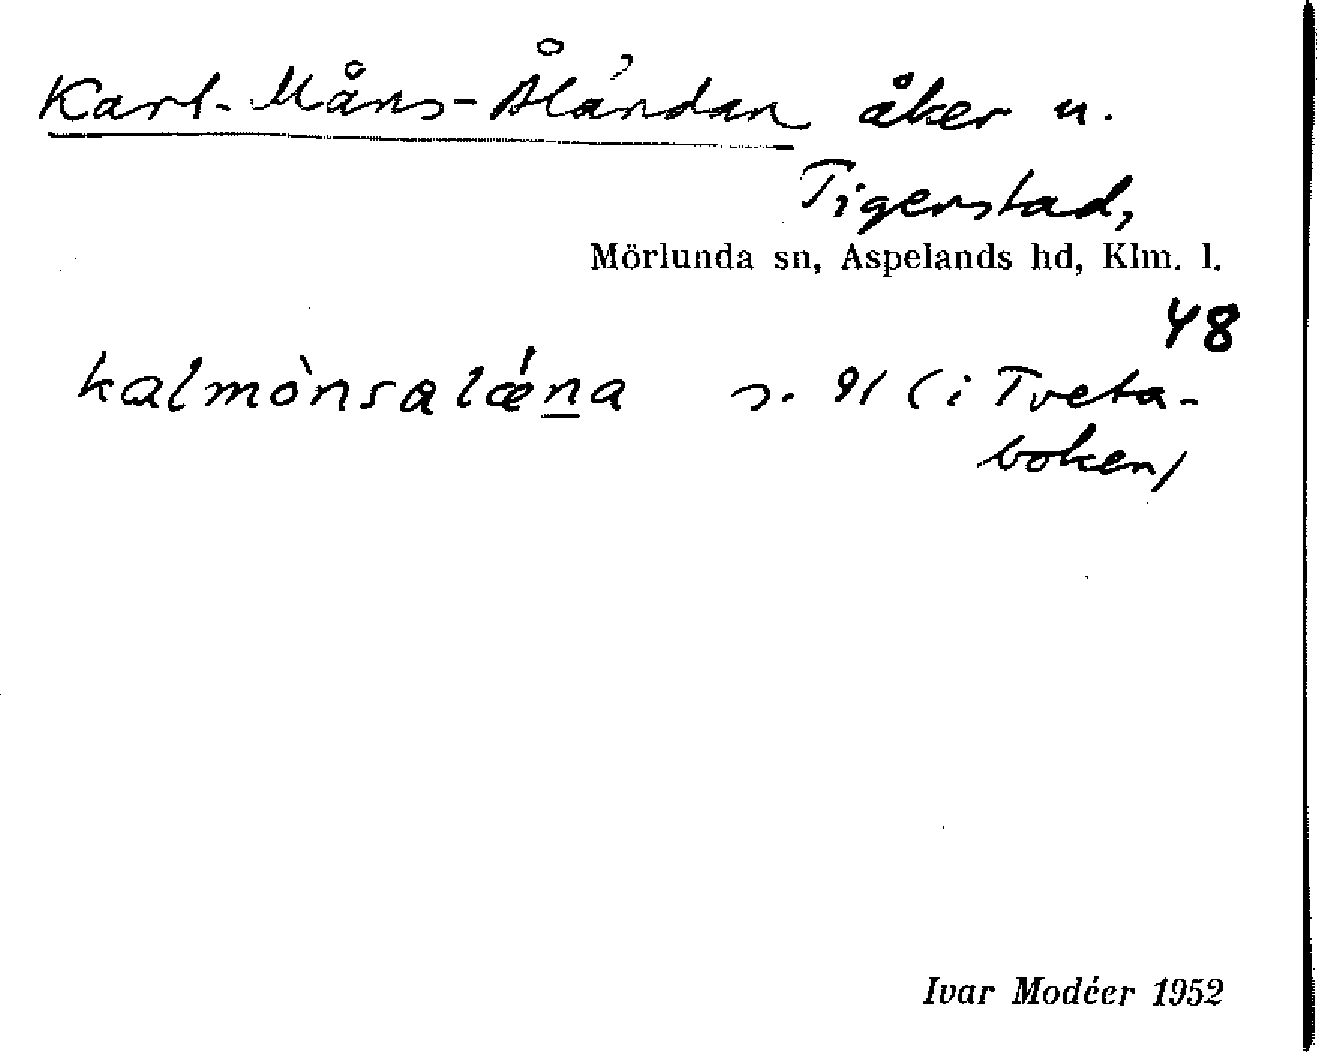 Karl-Måns-Åländan åker u.
Tigerstad,
Mörlunda sn, Aspelands hd, Klm. l.
48
kalmònsalǽna s. 91 (i Tveta-
boken)
Ivar Modéer 1952